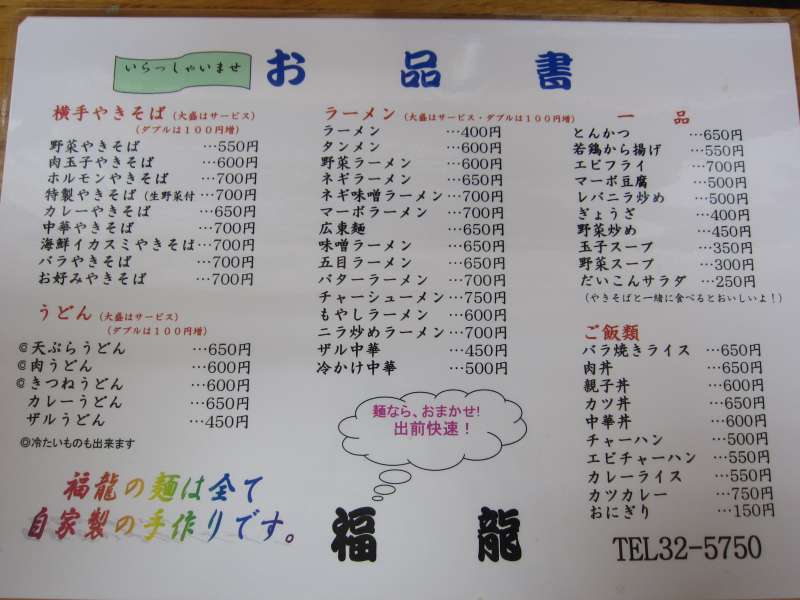 いらっしゃいませ
お品書
横手やきそば（大盛はサービス）
（ダブルは１００円増）
野菜やきそば …550円
肉玉子やきそば …600円
ホルモンやきそば …700円
特製やきそば（生野菜付 …700円
カレーやきそば …650円
中華やきそば …700円
海鮮イカスミやきそば …700円
バラやきそば …700円
お好みやきそば …700円
うどん（大盛はサービス）
（ダブルは１００円増）
◎天ぷらうどん …650円
◎肉うどん …600円
◎きつねうどん …600円
カレーうどん …650円
ザルうどん …450円
◎冷たいものも出来ます
福龍の麺は全て
自家製の手作りです。
ラーメン（大盛はサービス・ダブルは１００円増）
ラーメン …400円
タンメン …600円
野菜ラーメン …600円
ネギラーメン …650円
ネギ味噌ラーメン …700円
マーボラーメン …700円
広東麺 …650円
味噌ラーメン …650円
五目ラーメン …650円
バターラーメン …700円
チャーシューメン …750円
もやしラーメン …600円
ニラ炒めラーメン …700円
ザル中華 …450円
冷かけ中華 …500円
麺なら、おまかせ!
出前快速！
福龍
一品
とんかつ …650円
若鶏から揚げ …550円
エビフライ …700円
マーボ豆腐 …500円
レバニラ炒め …500円
ぎょうざ …400円
野菜炒め …450円
玉子スープ …350円
野菜スープ …300円
だいこんサラダ …250円
（やきそばと一緒に食べるとおいしいよ！）
ご飯類
バラ焼きライス …650円
肉丼 …650円
親子丼 …600円
カツ丼 …650円
中華丼 …600円
チャーハン …500円
エビチャーハン …550円
カレーライス …550円
カツカレー …750円
おにぎり …150円
TEL32-5750